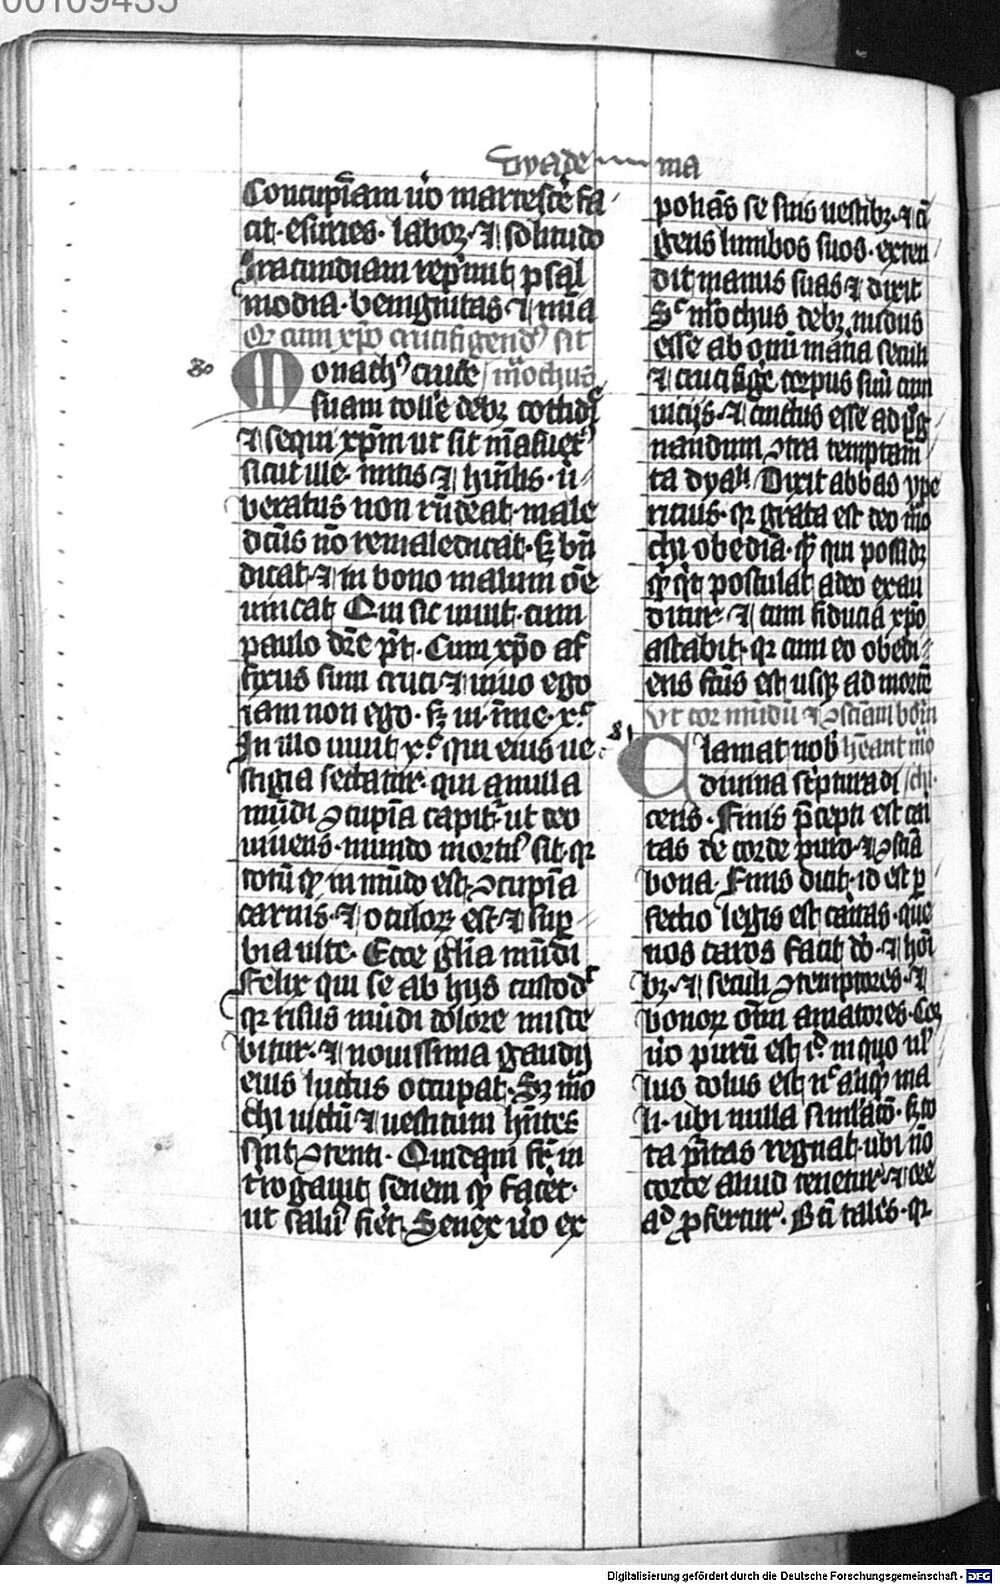 00109435
Dyade ma
Concupīam ūo marcesc̄e fa
cit. esuries. laboꝝ. ⁊ solitudo
Iracundiam rep̄mit psal
modia. benignitas ⁊ mīa
Qꝛ cum xp̄o crucifigendꝰ sit
80
Monachꝰ cruce mōchus
suam tolle debꝫ cottidi
⁊ sequi xp̄m ut sit māsuet
sicut ille. mitis ⁊ hūilis.
beratus non rn̄deat. male
dictus nō remaledicat. sꝫ bn̄
dicat. ⁊ in bono malum om̄e
uincat. Qui sic uiuit. cum
paulo dr̄e pt̄. Cum xp̄o af
fixus sum cruci. ⁊ uiuo ego
iam non ego. sꝫ ui. ī me. xꝰ
In illo uiuit xꝰ. qui eius ue
stigia sectatur. qui a nulla
mūdi ꝯcupīa capit̄. ut deo
uiuens. mundo mortuꝰ sit. qꝛ
totū qͩ in mūdo est. ꝯcupīa
carnis. ⁊ oculoꝝ est. ⁊ sup
bia uite. Ecce gl̄ia mūdi
Felix qui se ab hijs custod
qꝛ risus mūdi dolore misce
bitur. ⁊ nouissima gaudij
eius luctus occupat. Sꝫ mō
chi uictū ⁊ uestitum hn̄tes
sint ꝯtenti. Quidam fr̄ in
trogauit senem qͩ facet.
ut saluꝰ fiet. Senex ūo ex
poliās se suis uestibꝫ. ⁊ cī
gens lumbos suos. exten
dit manus suas ⁊ dixit
Sic mōchus debꝫ nudus
esse ab om̄i mat̄ia seculi
⁊ crucifige corpus suū cum
uicijs. ⁊ cinctus esse ad pug
nandum ꝯtra temptam̄
ta dyaboli. Dixit abbas ype
ricius. qꝛ grata est deo mō
chi obedīa. qͣ qui possidꝫ
qͩ qͥt postulat adeo exau
ditur. ⁊ cum fiducia xp̄o
astabit. qꝛ cum eo obedi
ens factus est. usqꝫ ad mortē
Ut cor mūdū ⁊ ꝯsciam bonā
81
Clamat nob̄ hēant mō
diuina sc̄ptura di chi.
cens. Finis p̄cepti est cari
tas de corde puro. ⁊ ꝯscīa
bona. Finis dicit. id est per
fectio legis est caritas. que
nos caros facit do. ⁊ homī
bꝫ. ⁊ seculi ꝯtemptores. ⁊
bonoꝝ om̄i amatores. Cor
ūo purū est id. in quo ul
lus dolus est nͨ aliqͩ ma
li. ubi nulla simulatō. sꝫ to
ta puritas regnat. ubi nō
corde aliud tenetur. ⁊ ore
ad profertur. Bt̄i tales. qꝛ
Digitalisierung gefördert durch die Deutsche Forschungsgemeinschaft - DFG